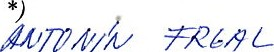 *)
ANTONÍN FRGAL